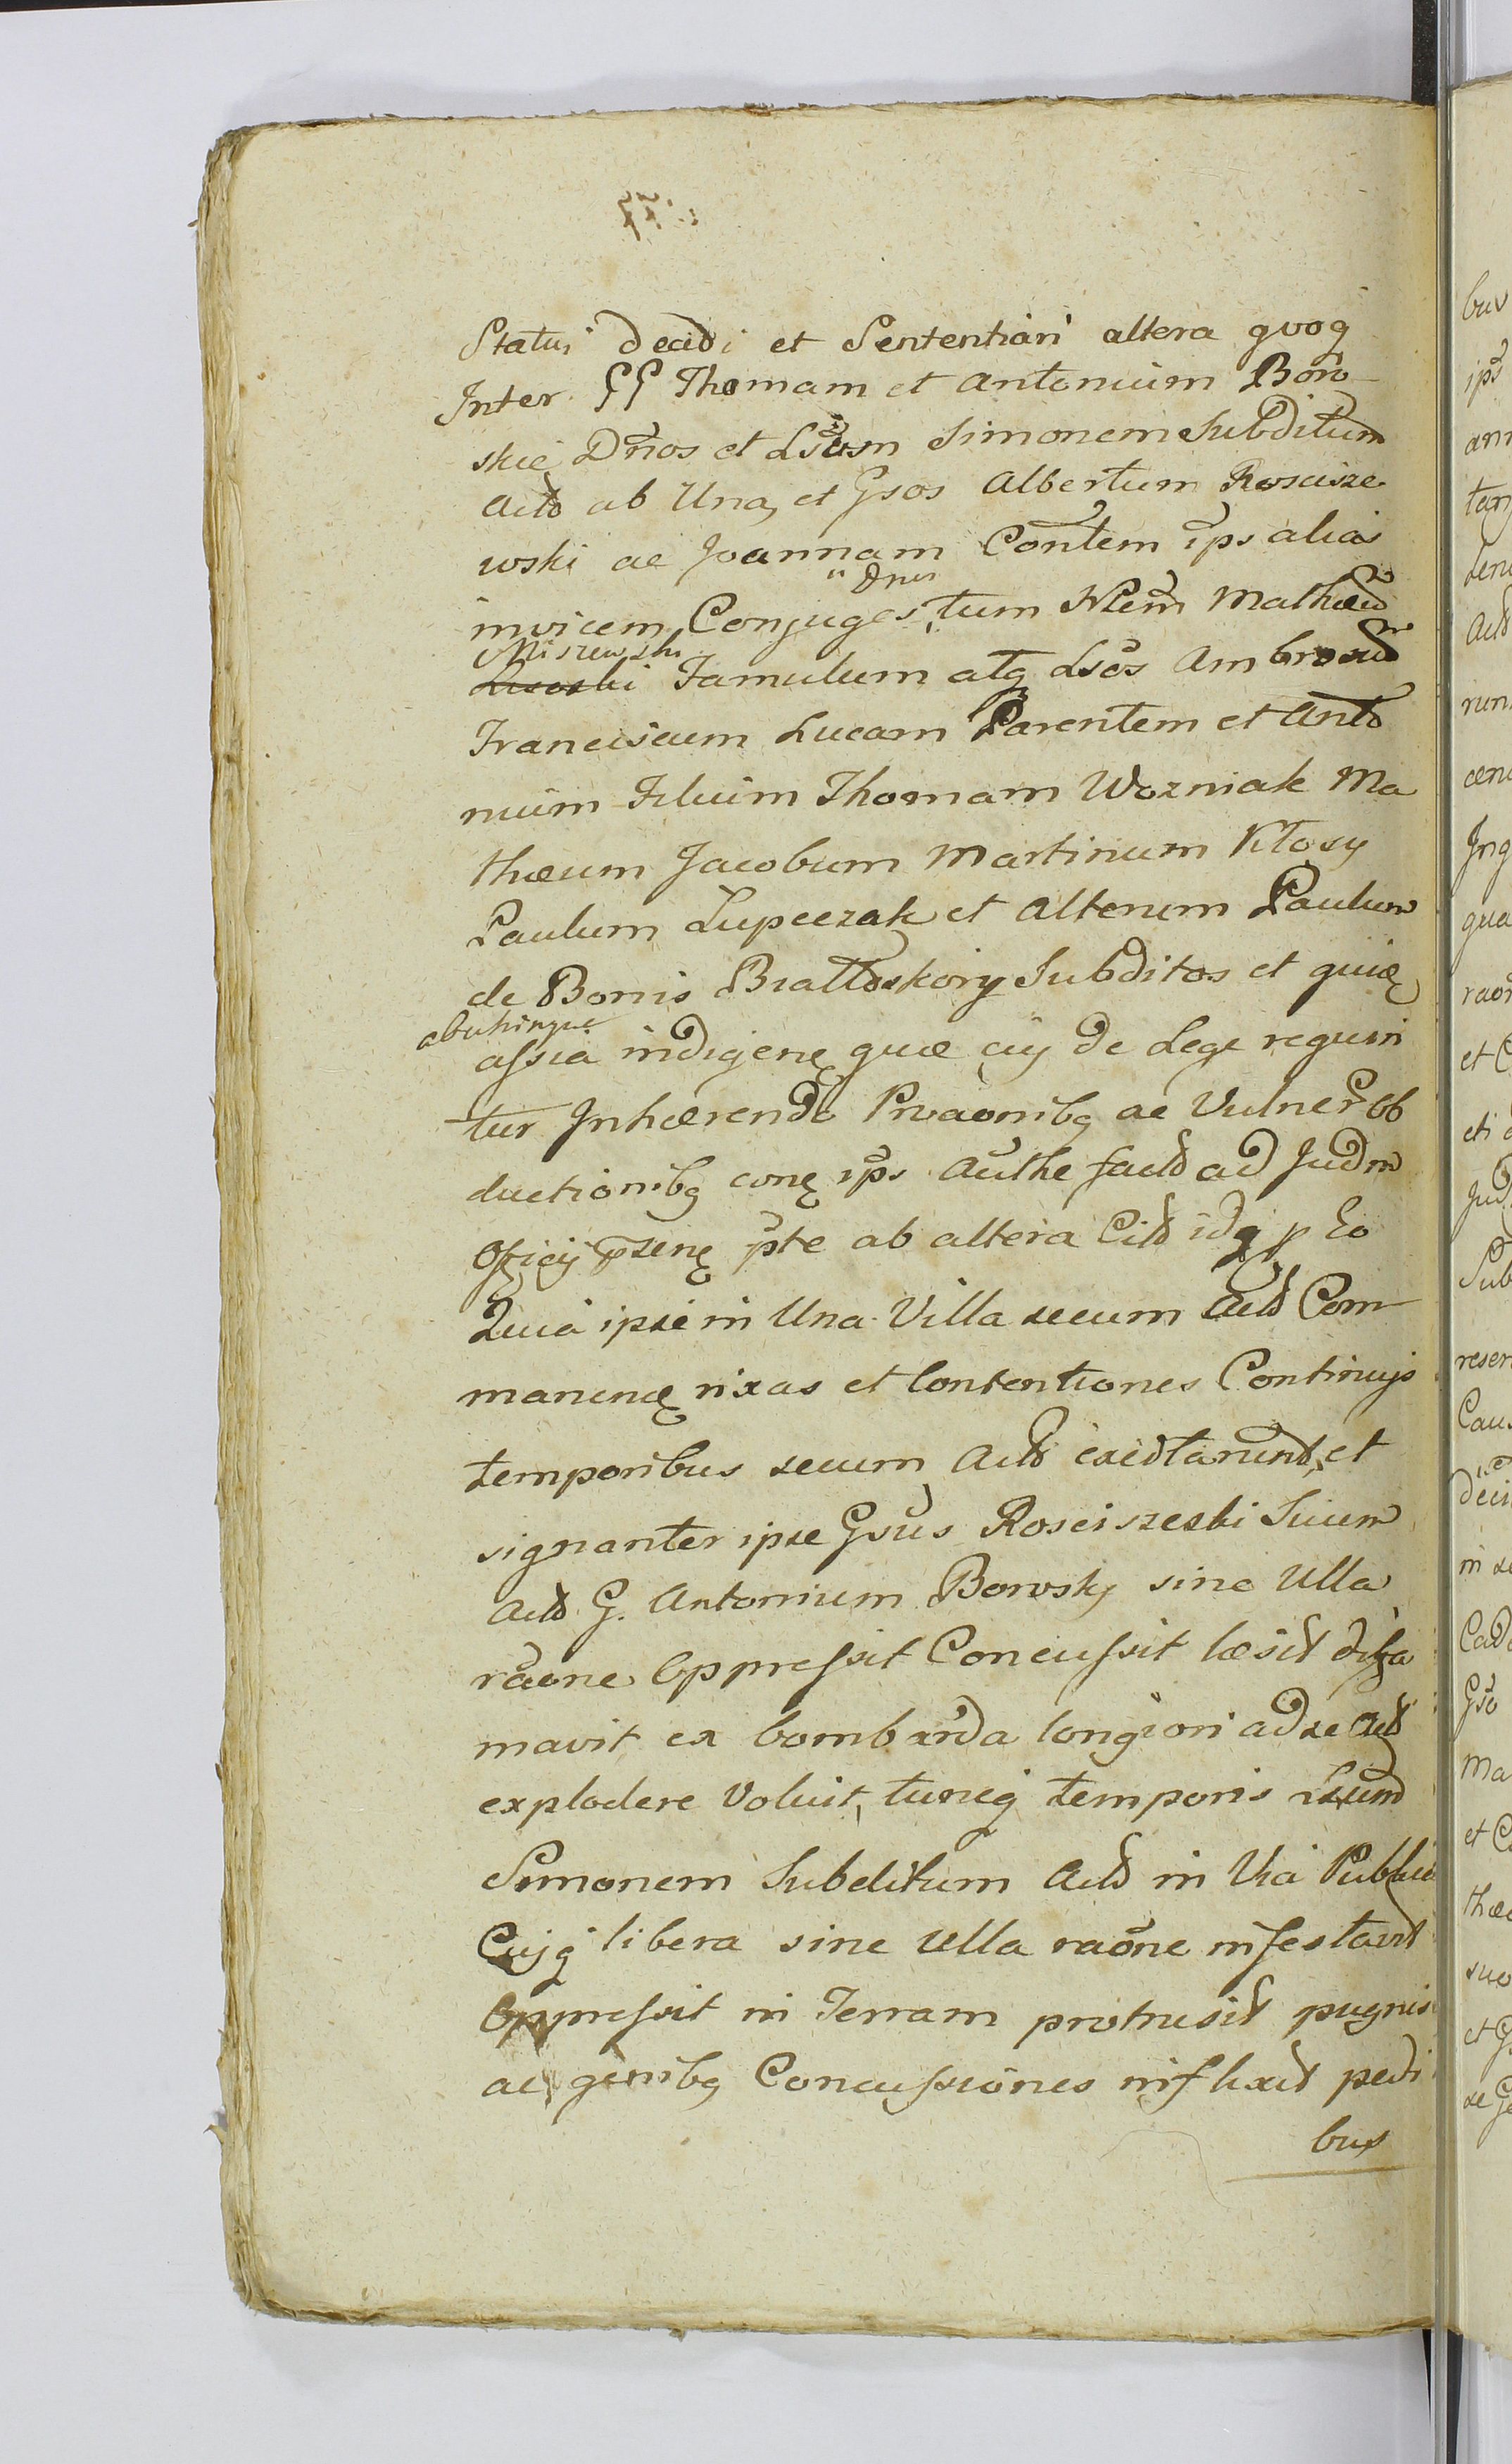 Statui decidi et Sententiari altera quoq
Inter GG Thomam et Antonium Boro
skie Dnos et Lsum Simonem Subditum
Actō ab Una, et Gsos Albertum Rościsze
wski ac Joannam Contem ips alias
" Dnos
invicem Conjuges, tum Nlem Mathæū
Miszewski
Lisoski Famulum atq Lsos Ambrosiū
Franciscum Lucam Parentem et Anto
nium Filium Thomam Wozniak Ma
thæum Jacobum Martinum Kłosy
Paulum Lupeczak et Alterum Paulum
de Bonis Subditos et
abuhinque
assia indigenę quæ cuj de Lege requiri
tur Inhærendo Prōaonibq ac Vulner ob
ductionibq conę ips Authe factō ad Judm
Officij pnsenę pte ab altera Citō idq p Eo
Quia ipse in Una Villa secum Actō Com
manenę rixas et Contentiones Continujs
temporibus secum Actō excitarunt, et
signanter ipse Gsus Rosciszeski Suum
Actō G. Antonium Borosky sine Ulla
raone Oppressit Concussit læsit diffa
mavit ex bombarda longiori ad se Actō
explodere Voluit, tuncq temporis Lsum
Simonem Subditum Actō in Via Publica
Cujq libera sine Ulla raone infestavit
Oppressit in Terram protrusit pugnis
ac genibq Concussiones inflixit pedi
bus
bus
ips
ann
tan
Actō
run
Inq
qua
raon
et C
Jud
Sub
reser
Cau
deci
in se
Cad
Gso
Ma
et C
thæ
suo
et G
se G